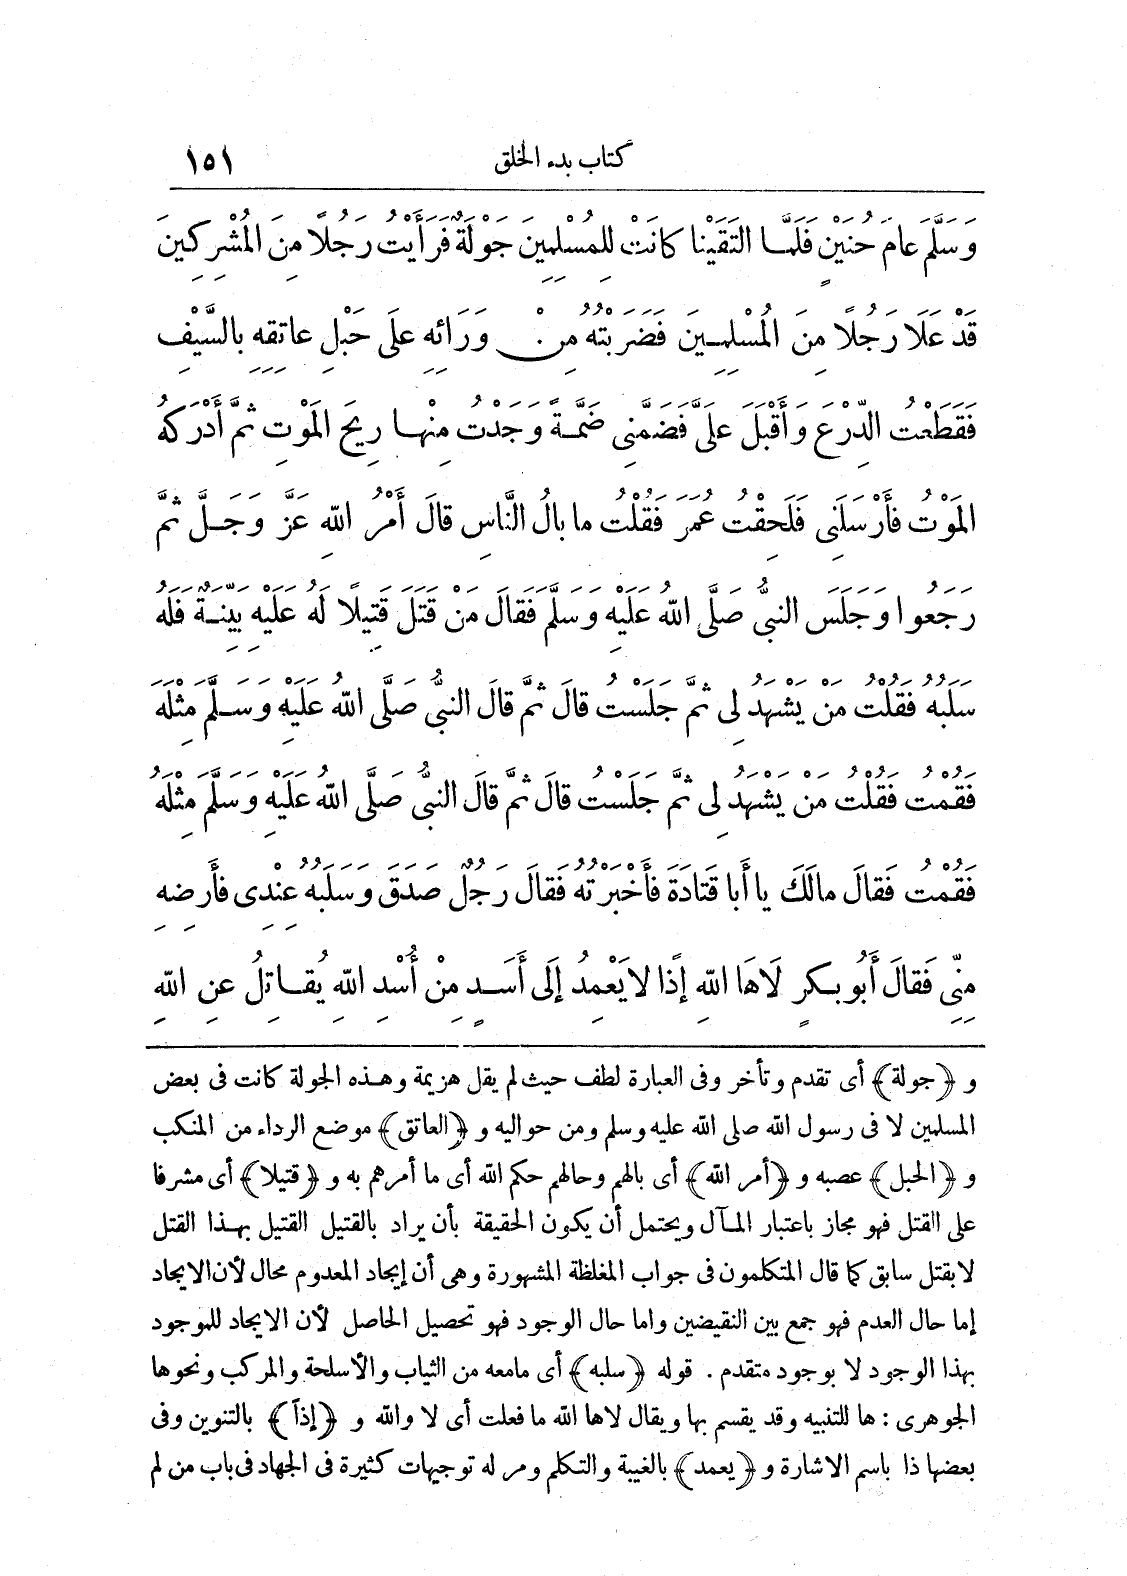 كتاب بدء الخلق ١٥١
وَسَلَّمَ عامَ حُنَيْنٍ فَلَمَّا التَقَيْنا كانَتْ لِلمُسْلِمِينَ جَوْلَةٌ فَرَأَيْتُ رَجُلاً مِنَ المُشْرِكِينَ
قَدْ عَلَا رَجُلاً مِنَ المُسْلِمِينَ فَضَرَبْتُهُ مِنْ وَرَائِهِ عَلَى حَبْلِ عاتِقِهِ بِالسَّيْفِ
فَقَطَعْتُ الدِّرْعَ وَأَقْبَلَ عَلَىَّ فَضَمَّنِى ضَمَّةً وَجَدْتُ مِنْها رِيحَ المَوْتِ ثُمَّ أَدْرَكَهُ
المَوْتُ فَأَرْسَلَنِى فَلَحِقْتُ عُمَرَ فَقُلْتُ ما بالُ النَّاسِ قالَ أَمْرُ اللهِ عَزَّ وَجَلَّ ثُمَّ
رَجَعُوا وَجَلَسَ النبىُّ صَلَّى اللهُ عَلَيْهِ وَسَلَّمَ فَقالَ مَنْ قَتَلَ قَتِيلاً لَهُ عَلَيْهِ بَيِّنَةٌ فَلَهُ
سَلَبُهُ فَقُلْتُ مَنْ يَشْهَدُ لِى ثُمَّ جَلَسْتُ قالَ ثُمَّ قالَ النبىُّ صَلَّى اللهُ عَلَيْهِ وَسَلَّمَ مِثْلَهُ
فَقُمْتُ فَقُلْتُ مَنْ يَشْهَدُ لِى ثُمَّ جَلَسْتُ قالَ ثُمَّ قالَ النبىُّ صَلَّى اللهُ عَلَيْهِ وَسَلَّمَ مِثْلَهُ
فَقُمْتُ فَقالَ مالَكَ يا أَبا قَتَادَةَ فَأَخْبَرْتُهُ فَقالَ رَجُلٌ صَدَقَ وَسَلَبُهُ عِنْدِى فَأَرْضِهِ
مِنِّى فَقالَ أَبُو بكرٍ لَاهَا اللهِ إِذًا لا يَعْمِدُ إِلَى أَسَدٍ مِنْ أُسْدِ اللهِ يُقاتِلُ عَنِ اللهِ
و ﴿جولة﴾ أى تقدم وتأخر وفى العبارة لطف حيث لم يقل هزيمة وهذه الجولة كانت فى بعض
المسلمين لا فى رسول الله صلى الله عليه وسلم ومن حواليه و ﴿العاتق﴾ موضع الرداء من المنكب
و ﴿الحبل﴾ عصبه و ﴿أمر الله﴾ أى بالهم وحالهم حكم الله أى ما أمرهم به و ﴿قتيلا﴾ أى مشرفا
على القتل فهو مجاز باعتبار المآل ويحتمل أن يكون الحقيقة بأن يراد بالقتيل القتيل بهذا القتل
لا بقتل سابق كما قال المتكلمون فى جواب المغلظة المشهورة وهى أن إيجاد المعدوم محال لأن الايجاد
إما حال العدم فهو جمع بين النقيضين واما حال الوجود فهو تحصيل الحاصل لأن الايجاد للموجود
بهذا الوجود لا بوجود متقدم . قوله ﴿سلبه﴾ أى مامعه من الثياب والأسلحة والمركب ونحوها
الجوهرى : ها للتنبيه وقد يقسم بها ويقال لاها الله ما فعلت أى لا والله و ﴿إذاً﴾ بالتنوين وفى
بعضها ذا باسم الاشارة و ﴿يعمد﴾ بالغيبة والتكلم ومر له توجيهات كثيرة فى الجهاد فى باب من لم